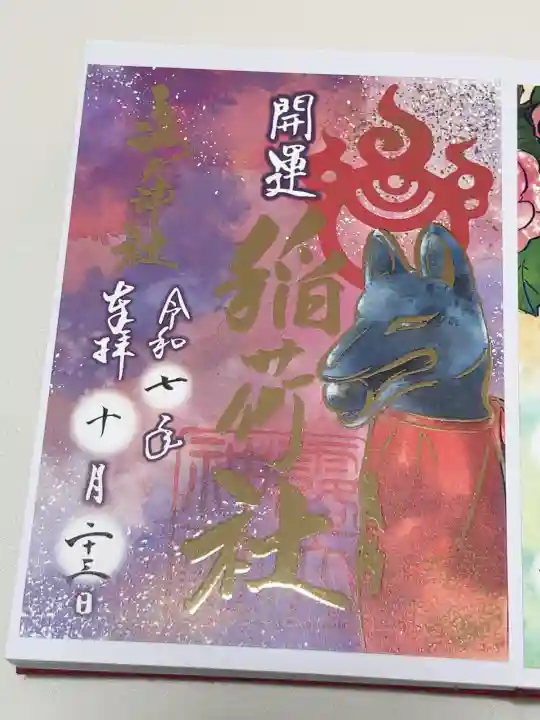 開運
稲荷社
神社
奉拝
令和七年
十月
二十三日